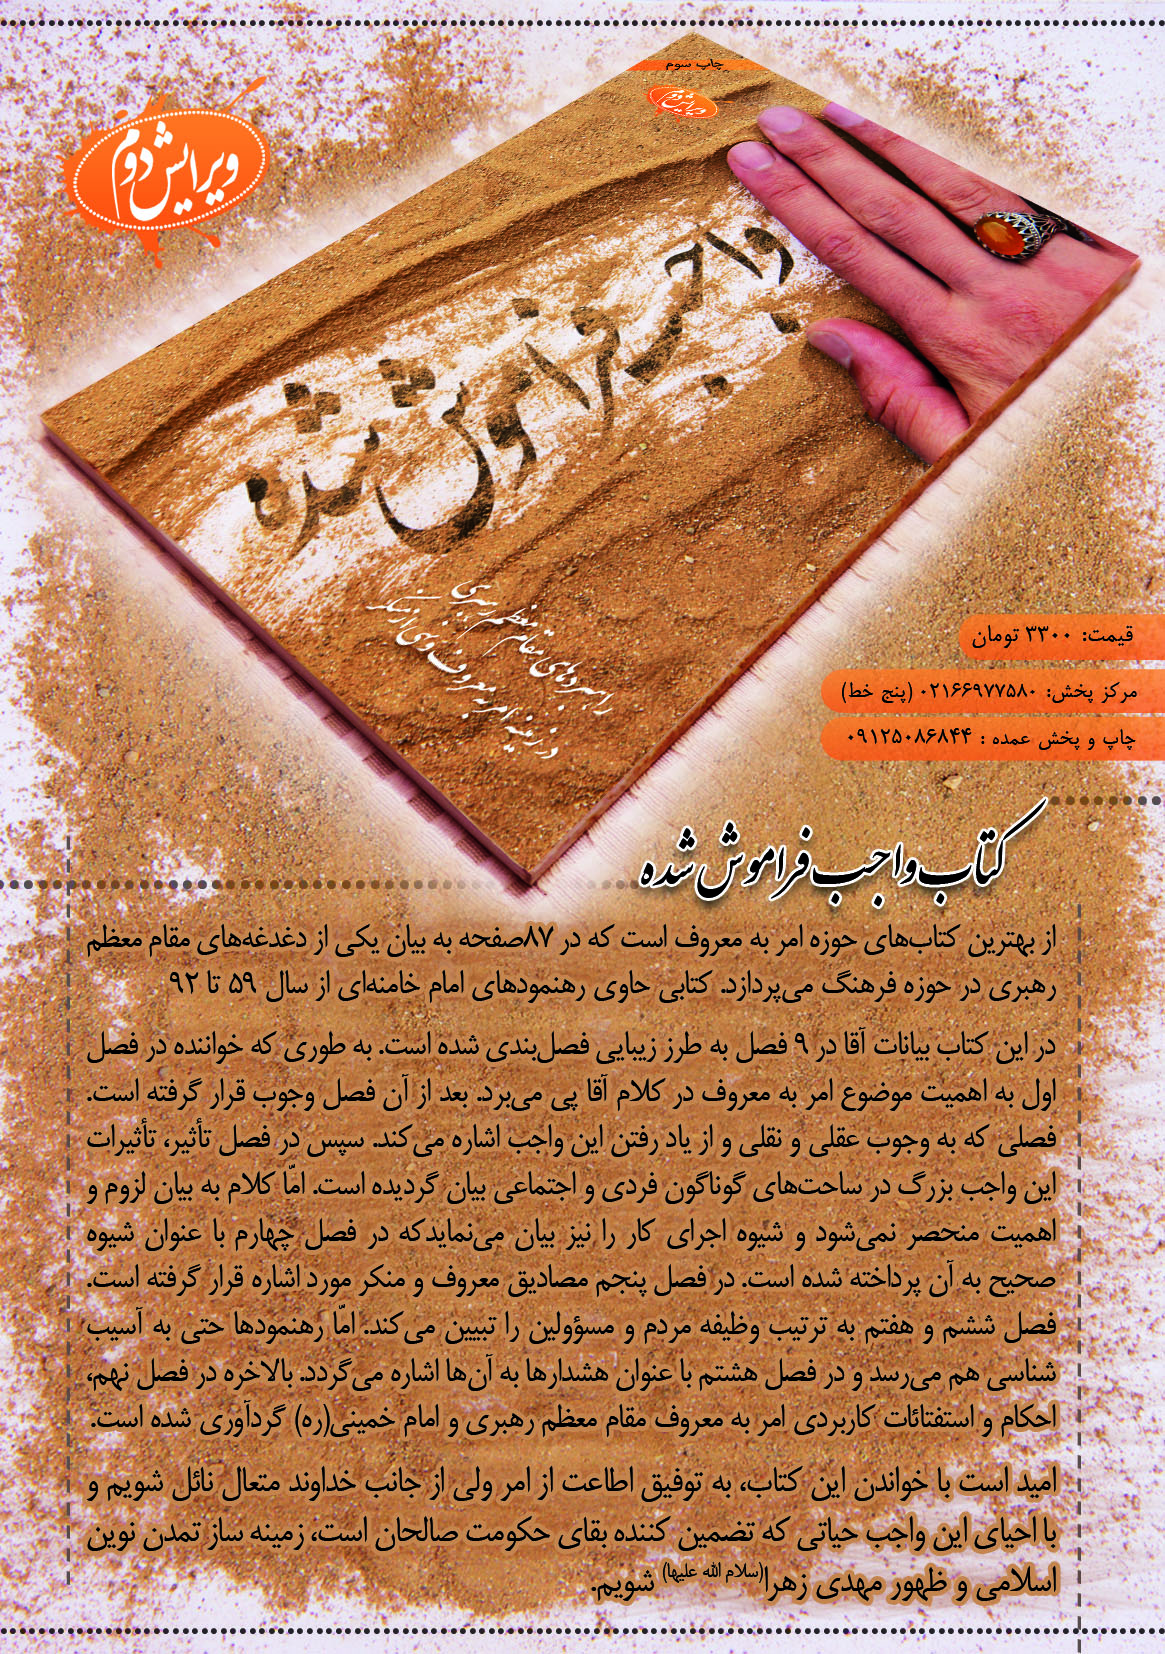 چاپ سوم
ویرایش دوم
ویرایش دوم
واجب فراموش شده
راهبردهای مقام معظم رهبری
در زمینه امر به معروف و نهی از منکر
قیمت: ۳۳۰۰ تومان
مرکز پخش: ۰۲۱۶۶۹۷۷۵۸۰ (پنج خط)
چاپ و پخش عمده : ۰۹۱۲۵۰۸۶۸۴۴
کتاب واجب فراموش شده
از بهترین کتاب‌های حوزه امر به معروف است که در ۸۷صفحه به بیان یکی از دغدغه‌های مقام معظم
رهبری در حوزه فرهنگ می‌پردازد. کتابی حاوی رهنمودهای امام خامنه‌ای از سال ۵۹ تا ۹۲
در این کتاب بیانات آقا در ۹ فصل به طرز زیبایی فصل‌بندی شده است. به طوری که خواننده در فصل
اول به اهمیت موضوع امر به معروف در کلام آقا پی می‌برد. بعد از آن فصل وجوب قرار گرفته است.
فصلی که به وجوب عقلی و نقلی و از یاد رفتن این واجب اشاره می‌کند. سپس در فصل تأثیر، تأثیرات
این واجب بزرگ در ساحت‌های گوناگون فردی و اجتماعی بیان گردیده است. امّا کلام به بیان لزوم و
اهمیت منحصر نمی‌شود و شیوه اجرای کار را نیز بیان می‌نمایدکه در فصل چهارم با عنوان شیوه
صحیح به آن پرداخته شده است. در فصل پنجم مصادیق معروف و منکر مورد اشاره قرار گرفته است.
فصل ششم و هفتم به ترتیب وظیفه مردم و مسؤولین را تبیین می‌کند. امّا رهنمودها حتی به آسیب
شناسی هم می‌رسد و در فصل هشتم با عنوان هشدارها به آن‌ها اشاره می‌گردد. بالاخره در فصل نهم،
احکام و استفتائات کاربردی امر به معروف مقام معظم رهبری و امام خمینی(ره) گردآوری شده است.
امید است با خواندن این کتاب، به توفیق اطاعت از امر ولی از جانب خداوند متعال نائل شویم و
با احیای این واجب حیاتی که تضمین کننده بقای حکومت صالحان است، زمینه ساز تمدن نوین
اسلامی و ظهور مهدی زهرا(سلام الله علیها) شویم.